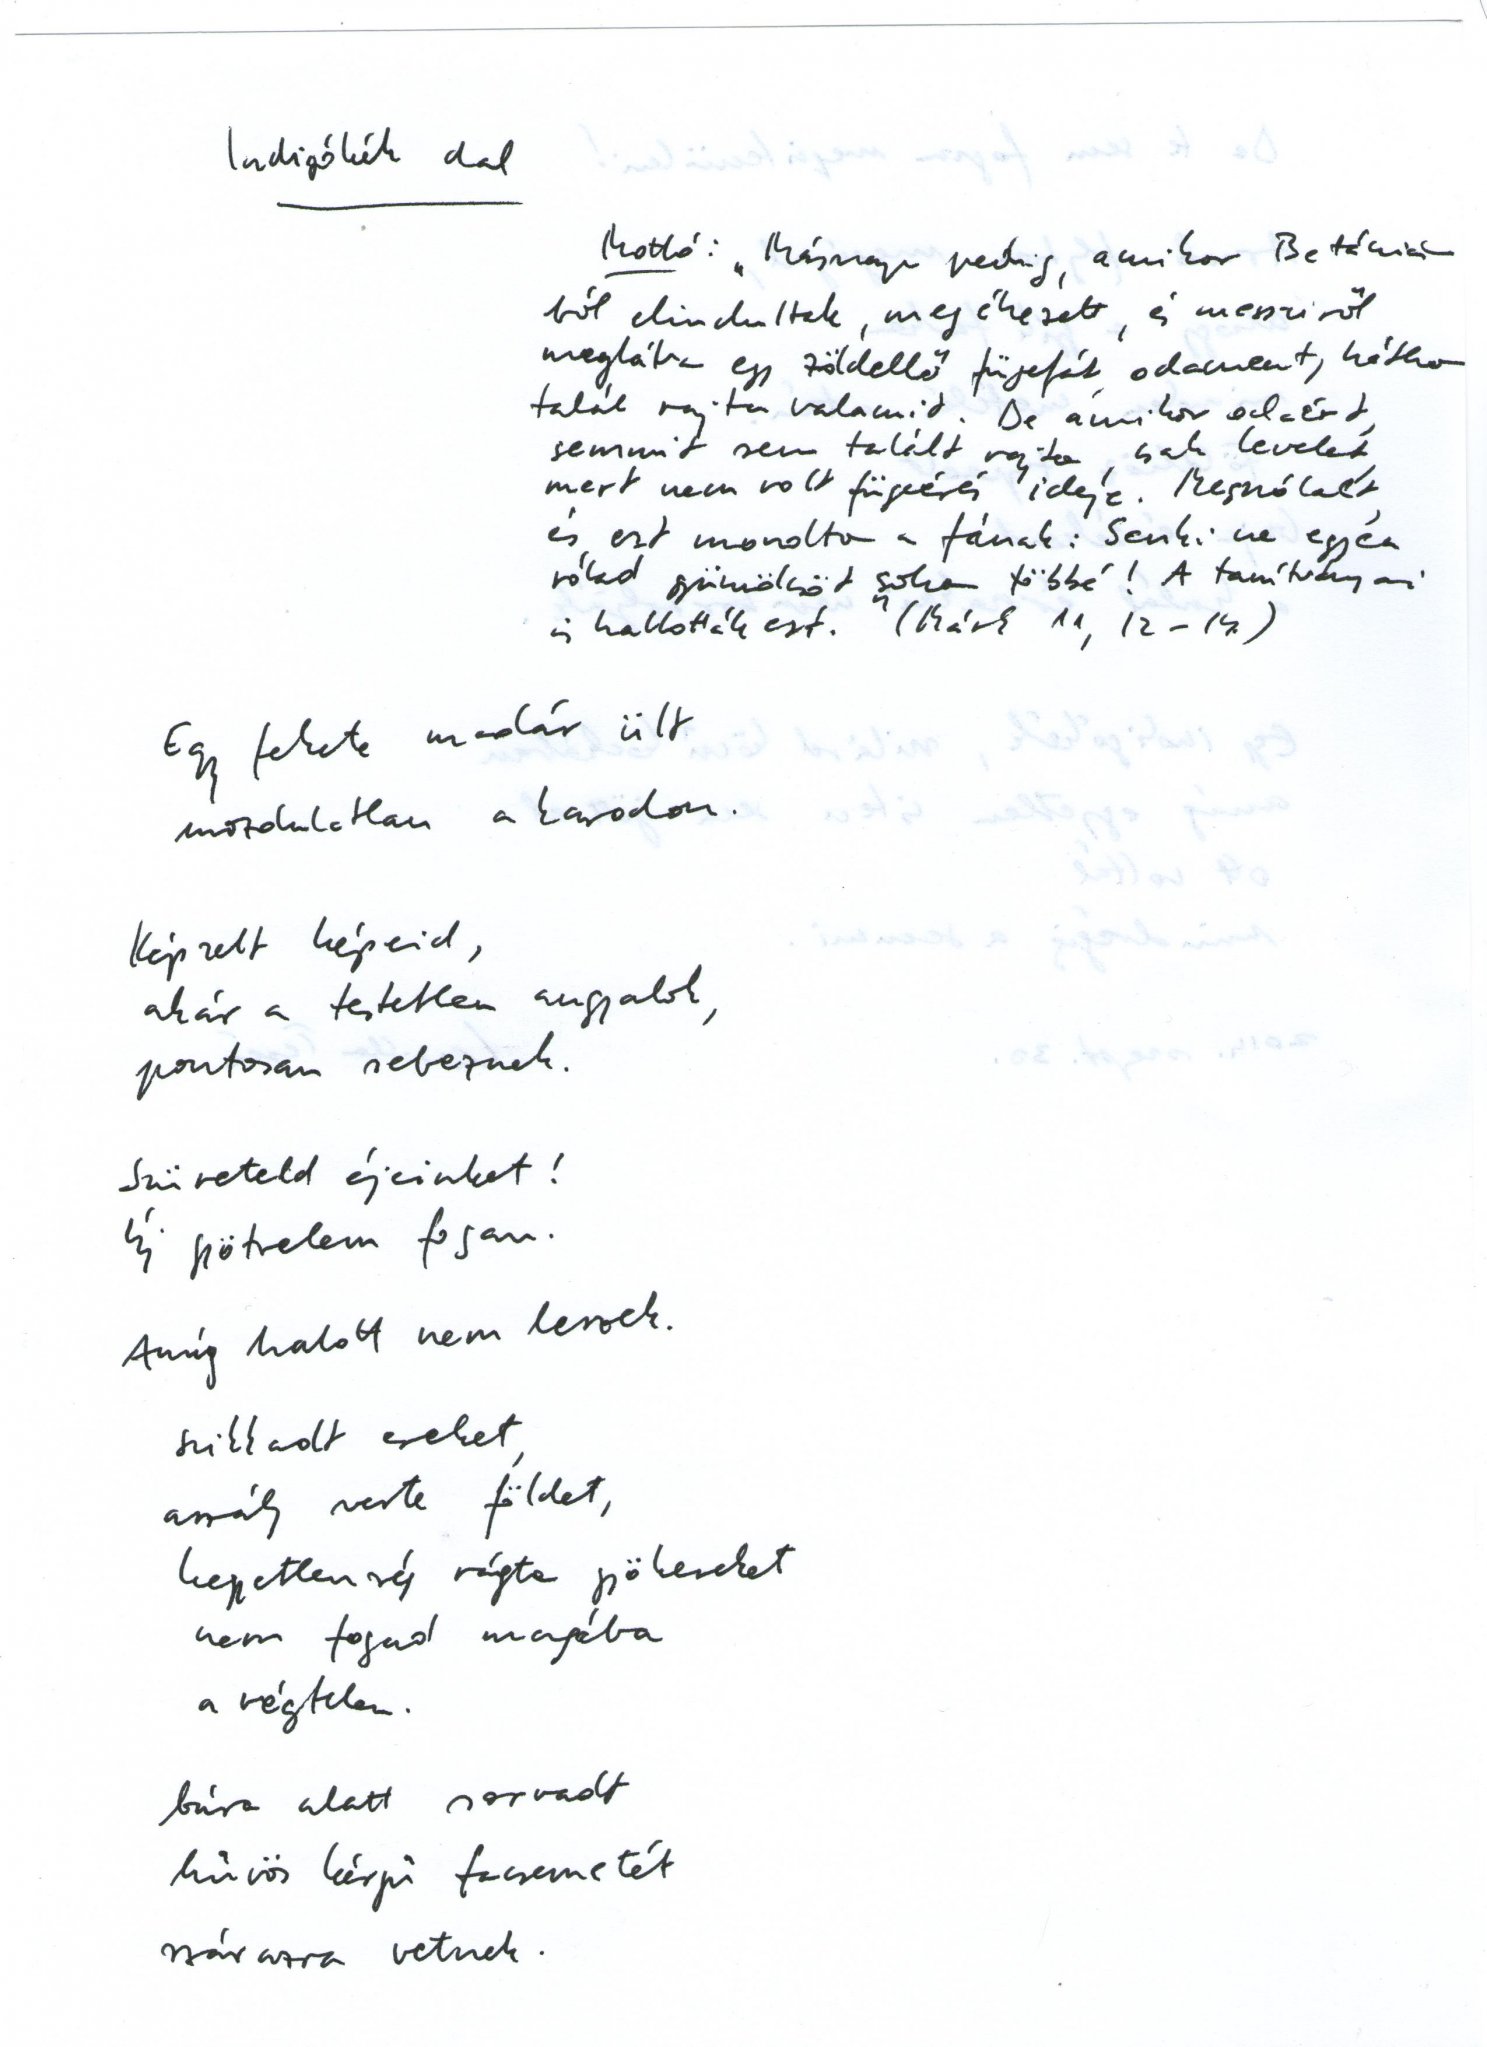 Indigókék dal
Mottó: „Másnap pedig, amikor Betániá-
ból elindultak, megéhezett, és messziről
meglátva egy zöldellő fügefát, odament, hátha
talál rajta valamit. De amikor odaért,
semmit sem talált rajta, csak levelet,
mert nem volt fügeérés ideje. Megszólalt,
és ezt mondta a fának: Senki ne egyék
rólad gyümölcsöt soha többé! A tanítványai
is hallották ezt." (Márk 11, 12-14)
Egy fekete madár ült
mozdulatlan a karodon.
Képzelt képeid,
akár a testetlen angyalok,
pontosan sebeznek.
Szüreteld éjeinket!
Új gyötrelem fogan.
Amíg halott nem leszek.
szikkadt ereket,
aszály verte földet,
kegyetlenség vágta gyökereket
nem fogad magába
a végtelen.
búra alatt sorvadt
hűvös kérgű facsemetét
szárazra vetnek.